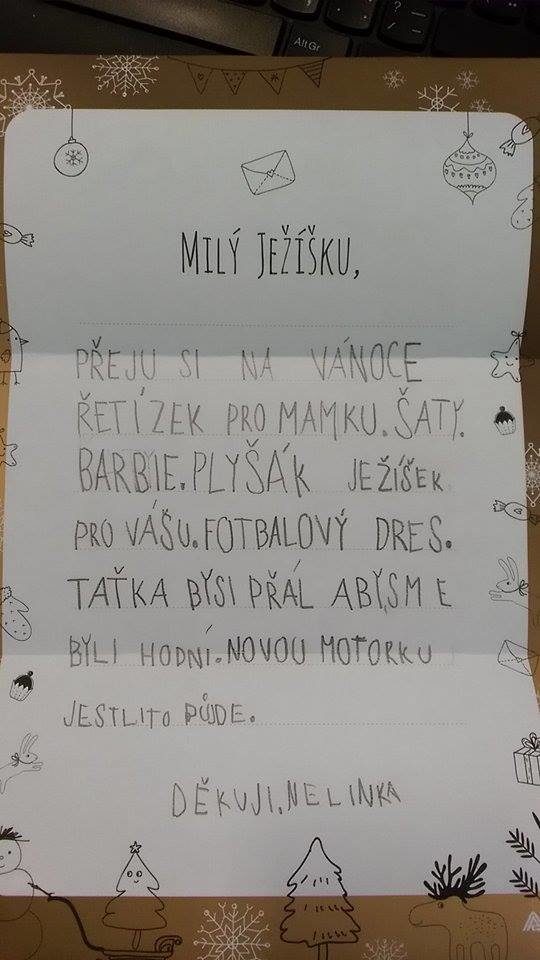 Alt Gr
MILÝ JEŽÍŠKU,
PŘEJU SI NA VÁNOCE
ŘETÍZEK PRO MAMKU. ŠATY.
BARBIE. PLYŠÁK JEŽÍŠEK
PRO VÁŠU. FOTBALOVÝ DRES.
TAŤKA BYSI PŘÁL ABYSME
BYLI HODNÍ. NOVOU MOTORKU
JESTLITO PŮJDE.
DĚKUJI. NELINKA